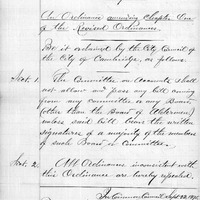 An Ordinance amending Chapter One
of the Revised Ordinances.
Be it ordained by the City Council of
the City of Cambridge, as follows:
Sect. 1. The Committee on Accounts shall
not allow and pass any bill arising
from any Committee or any Board
(other than the Board of Aldermen)
unless said bill bears the written
signatures of a majority of the members
of such Board or Committee.
Sect. 2. All Ordinances inconsistent with
this Ordinance are hereby repealed.
In Common Council Sept 22,